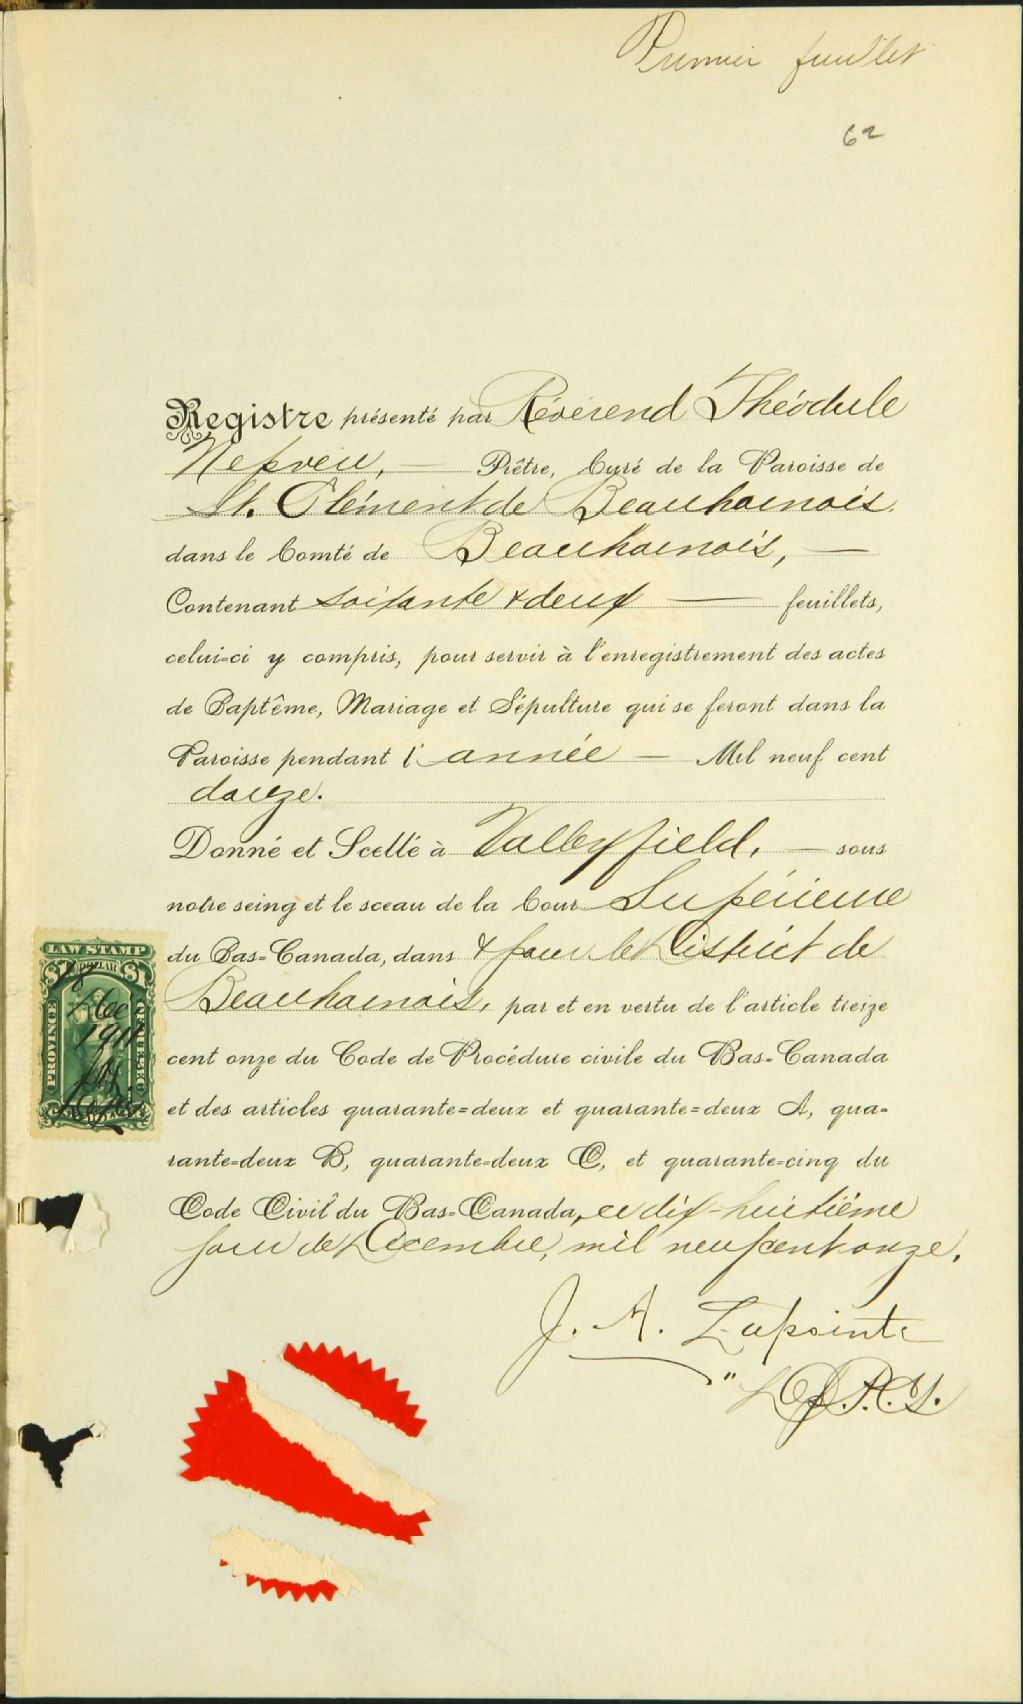 Premier feuillet
62
Registre présenté par Révérend Théodule
Nepveu, — Prêtre, Curé de la Paroisse de
St. Clément de Beauharnois.
dans le Comté de Beauharnois, —
Contenant soixante & deux — feuillets,
celui-ci y compris, pour servir à l'enregistrement des actes
de Baptême, Mariage et Sépulture qui se feront dans la
Paroisse pendant l'année — Mil neuf cent
douze.
Donné et Scellé à Valleyfield, — sous
notre seing et le sceau de la Cour Supérieure
du Bas-Canada, dans & pour le District de
Beauharnois, par et en vertu de l'article treize
cent onze du Code de Procédure civile du Bas-Canada
et des articles quarante-deux et quarante-deux A, qua-
rante-deux B, quarante-deux C, et quarante-cinq du
Code Civil du Bas-Canada, ce dix-huitième
jour de Décembre, mil neuf cent onze.
J. A. Lapointe
P.C.S.
LAW STAMP
$1 DOLLAR $1
PROVINCE
QUEBEC
18
Dec
1911